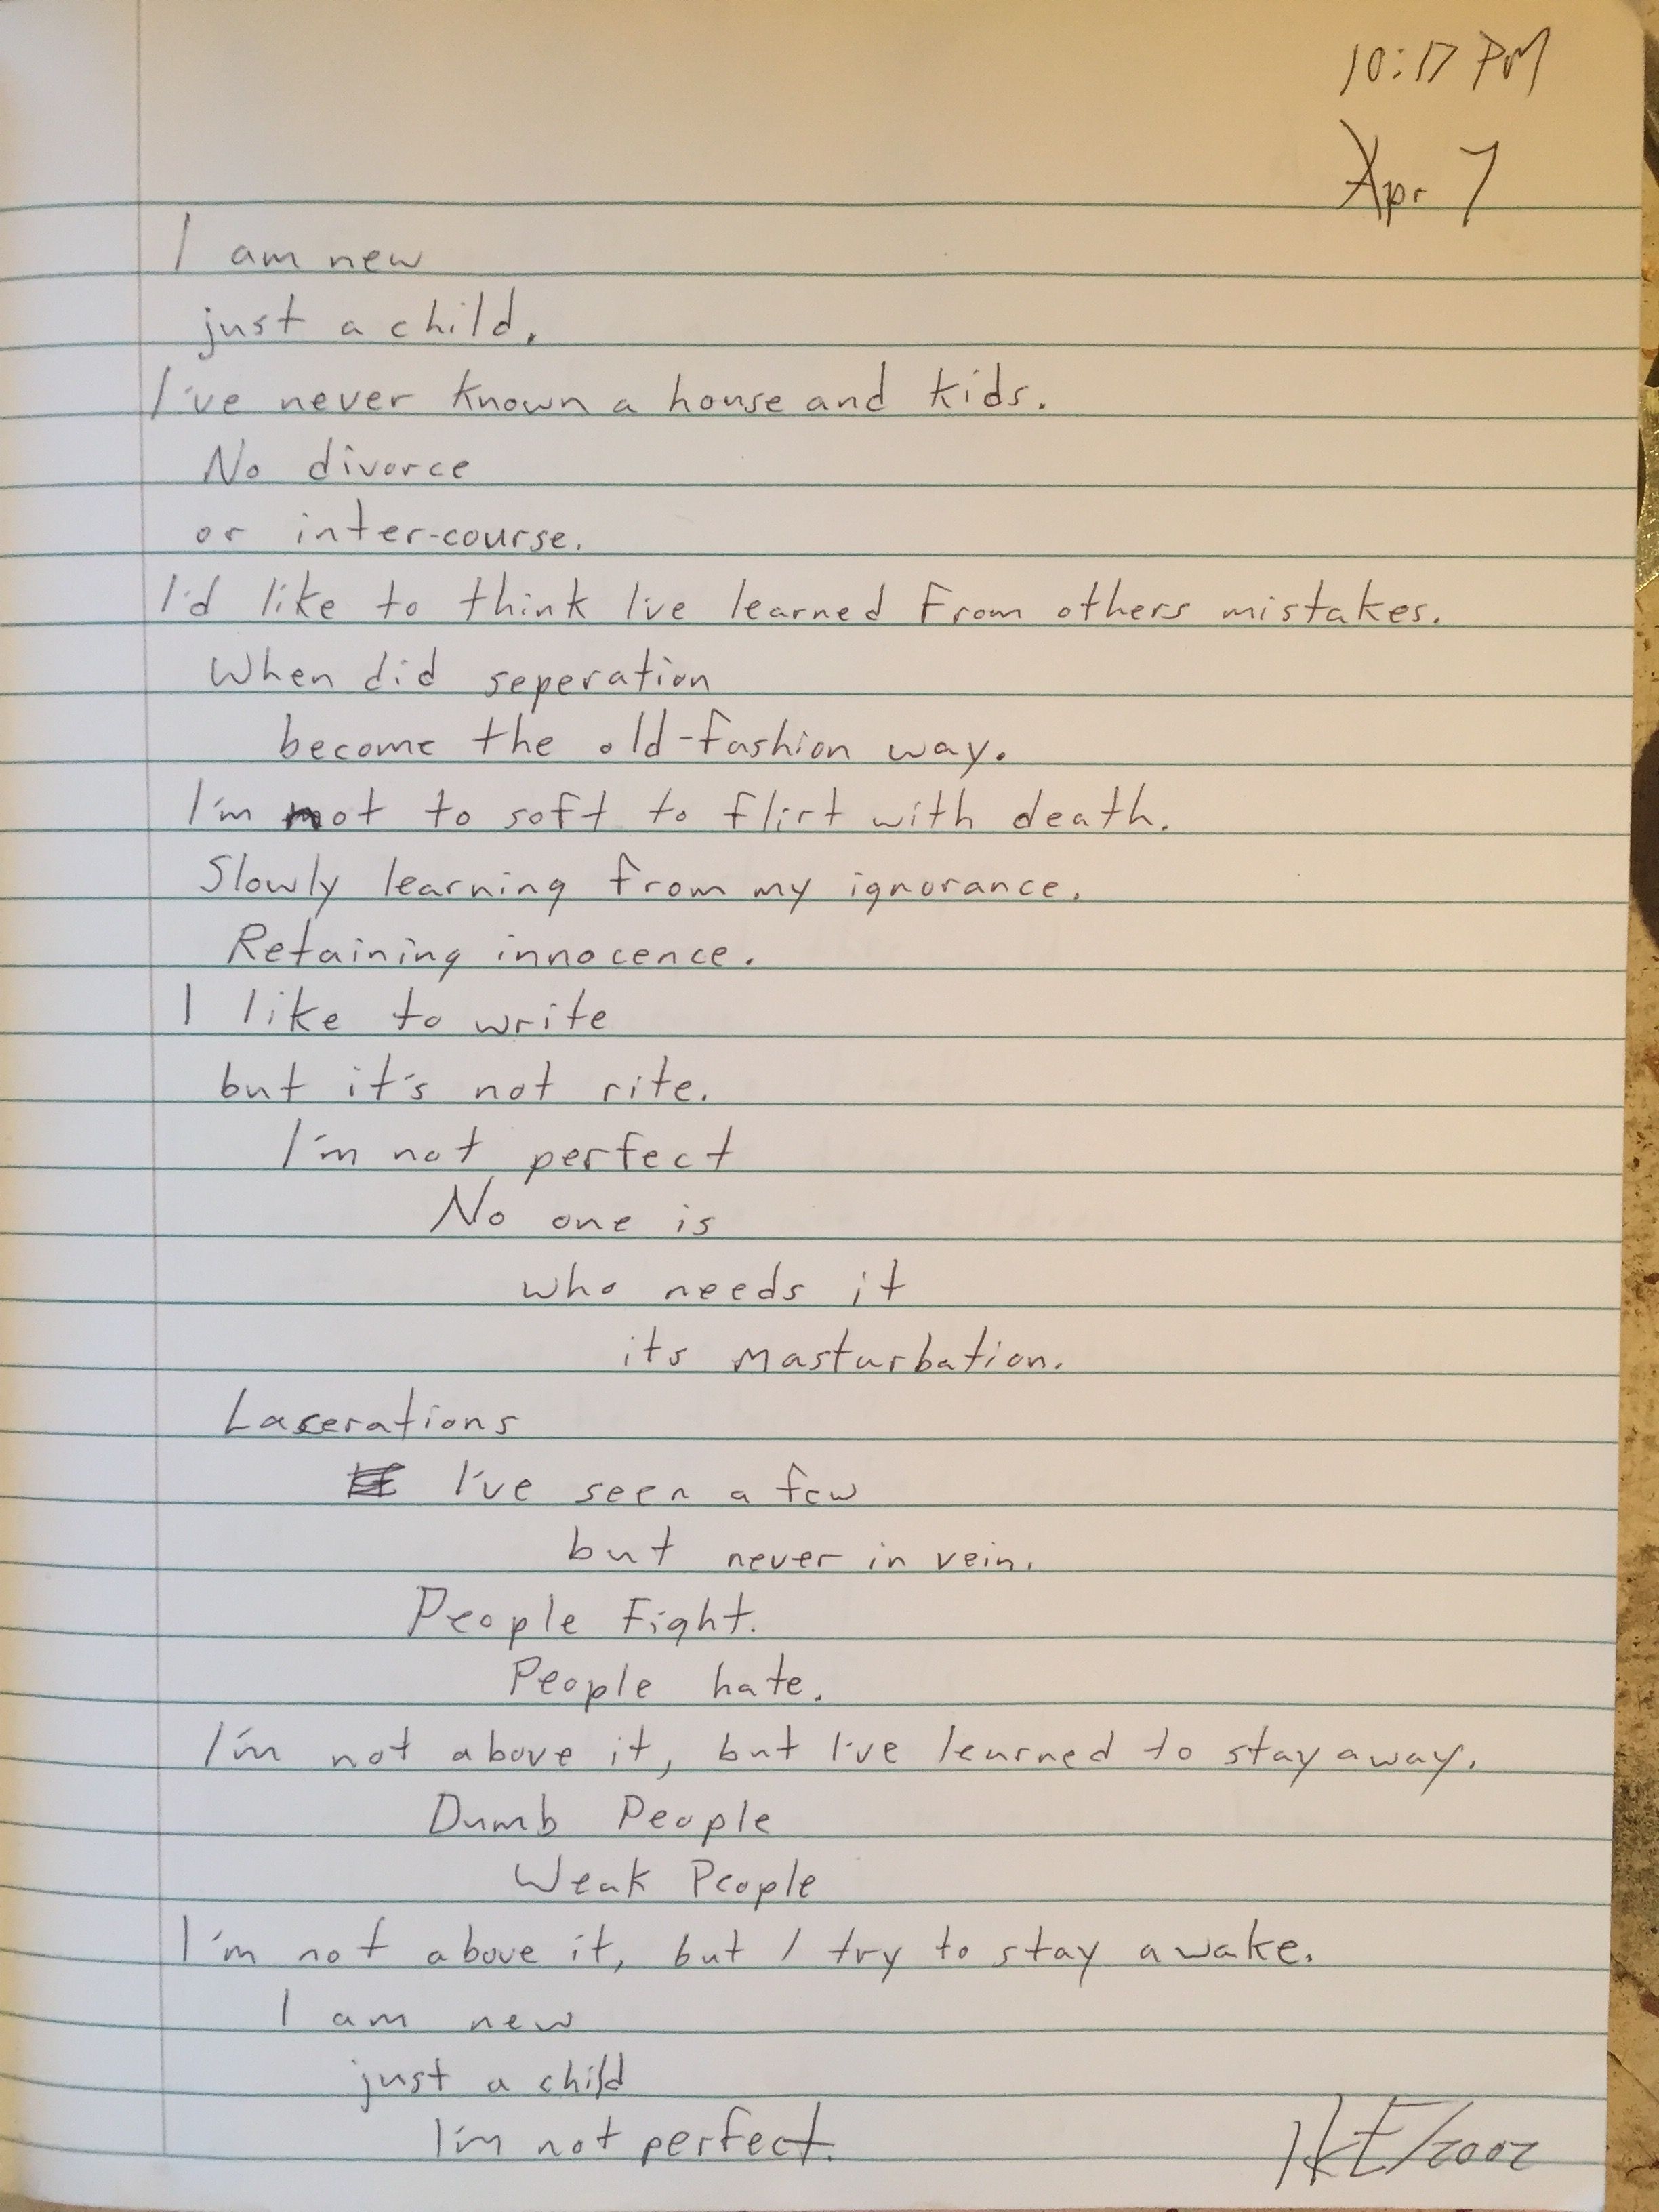 10:17 PM
Apr 7
I am new
just a child.
I've never known a house and kids.
No divorce
or inter-course.
I'd like to think I've learned from others mistakes.
When did seperation
become the old-fashion way.
I'm not to soft to flirt with death.
Slowly learning from my ignorance.
Retaining innocence.
I like to write
but it's not rite.
I'm not perfect
No one is
who needs it
its masturbation.
Lacerations
I've seen a few
but never in vein.
People Fight.
People hate.
I'm not above it, but I've learned to stay away.
Dumb People
Weak People
I'm not above it, but I try to stay awake.
I am new
just a child
I'm not perfect.
/2002